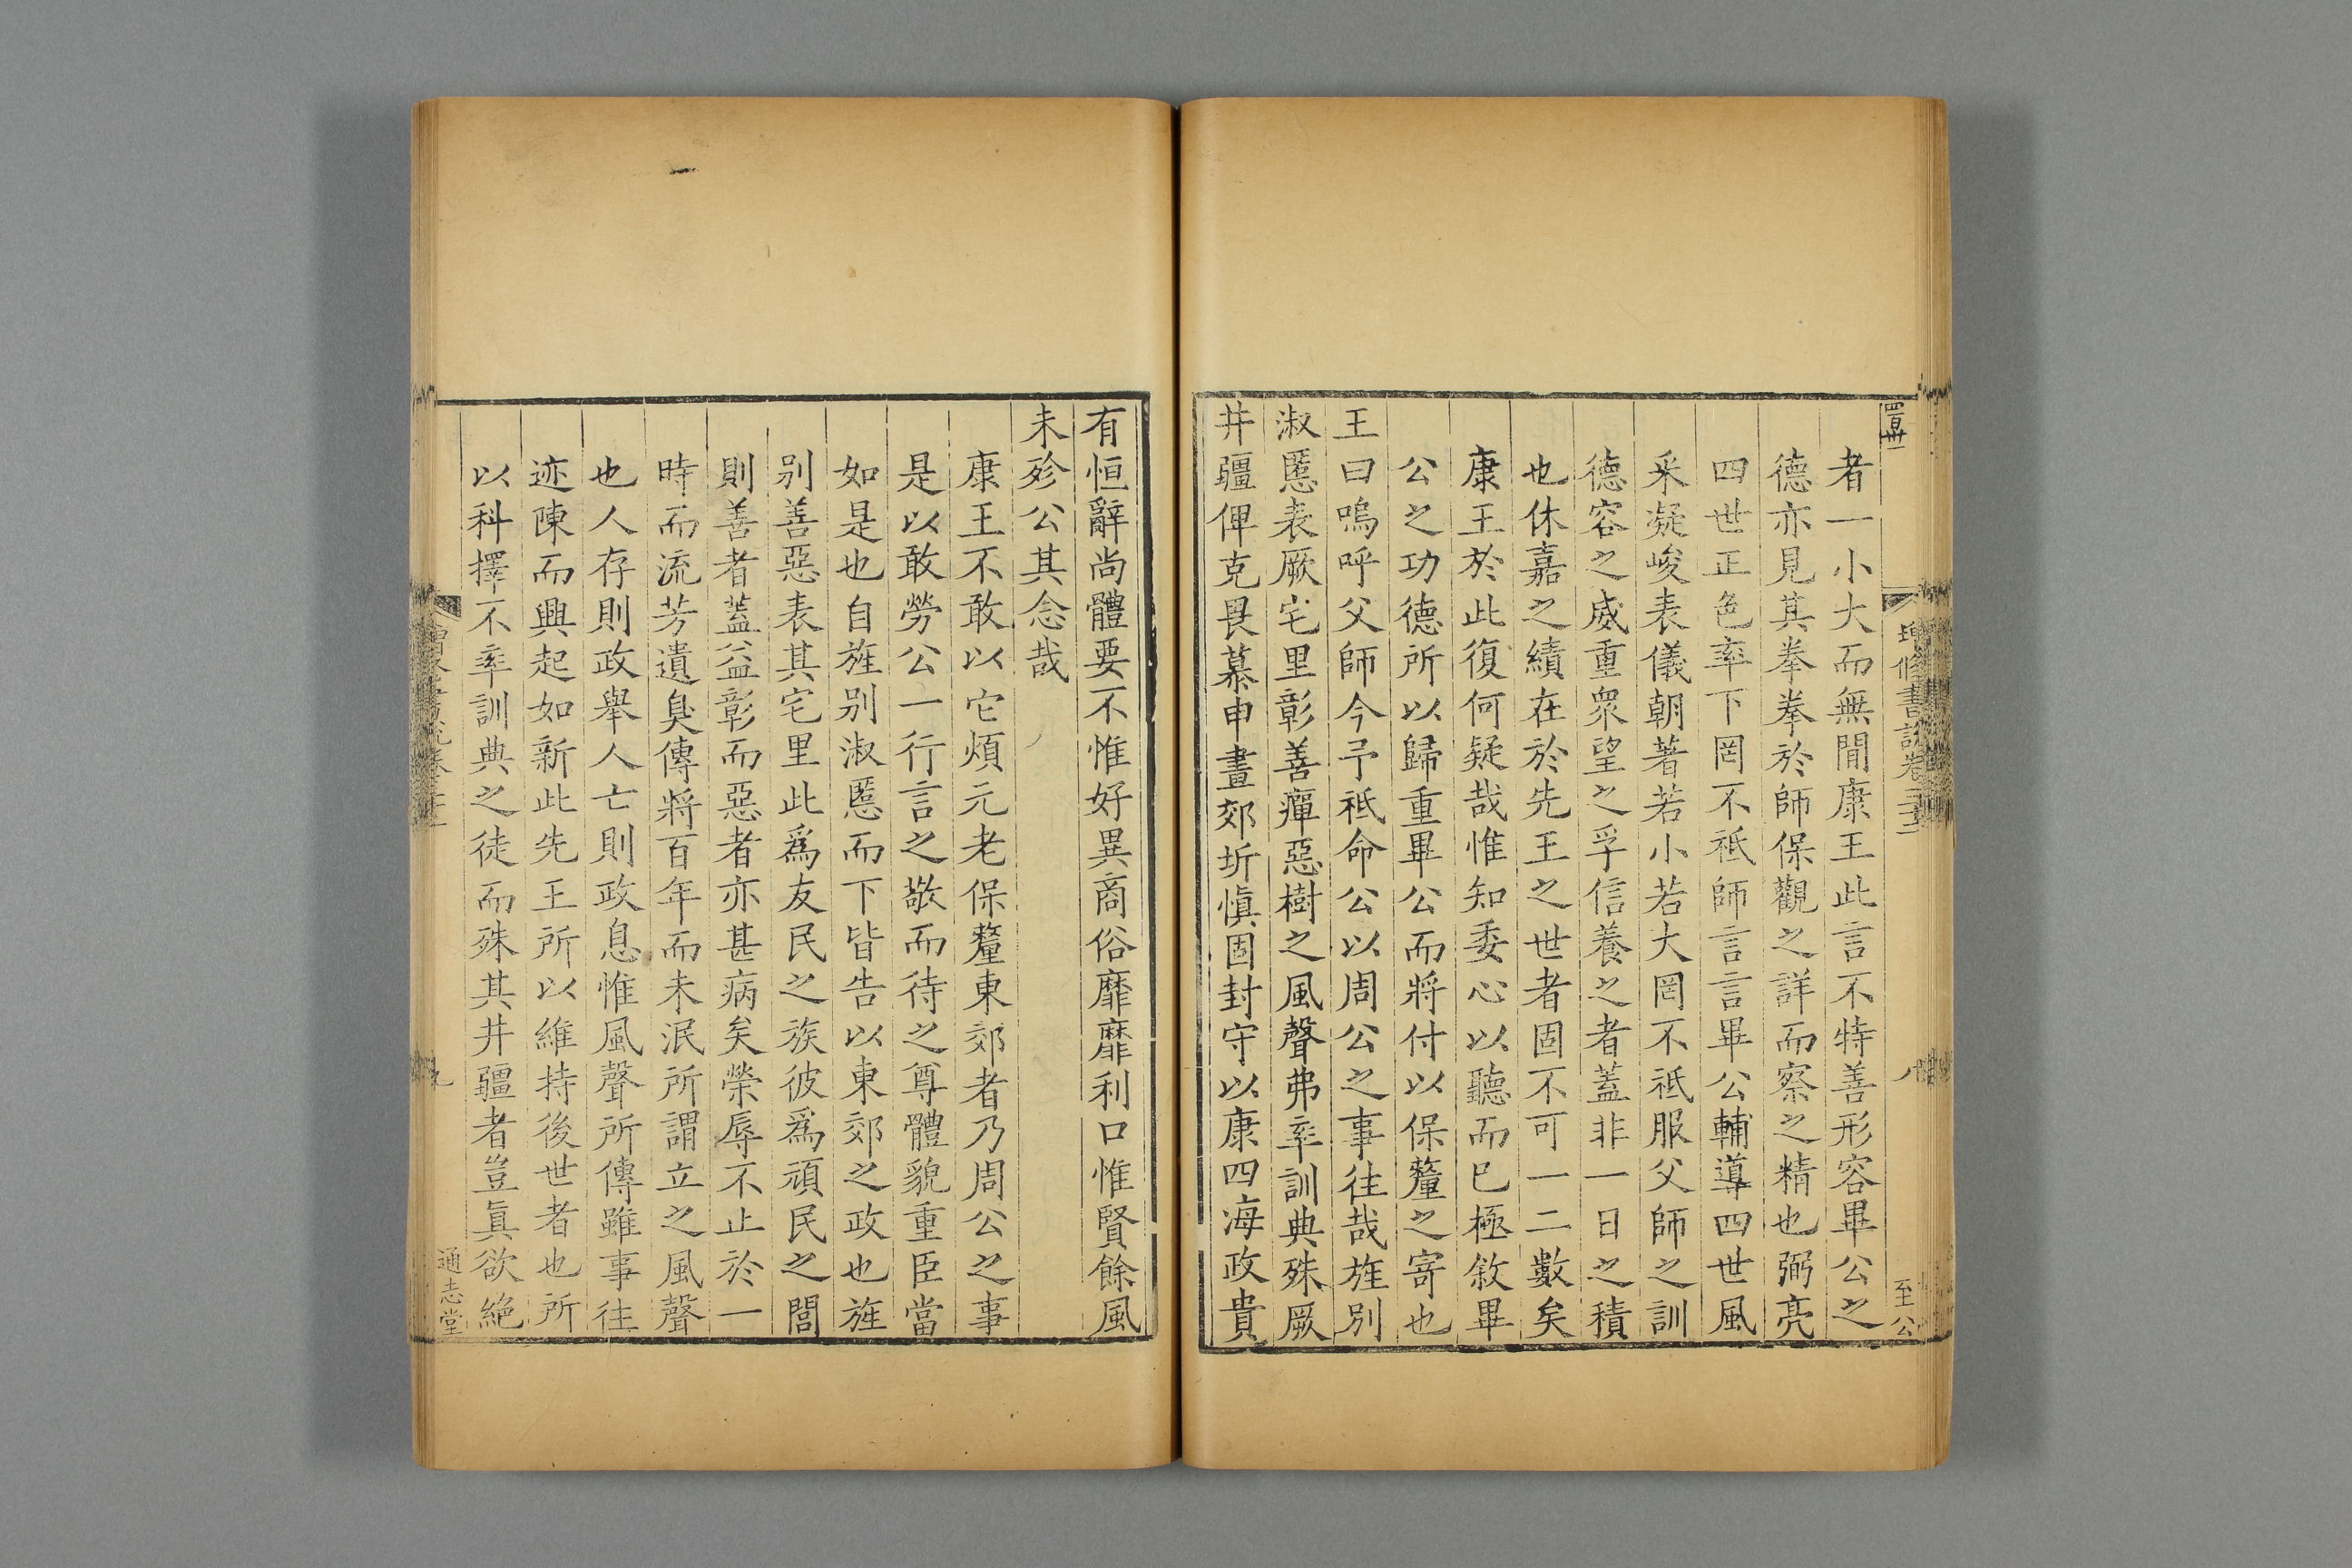 者一小大而無間康王此言不特善形容畢公之
德亦見其拳拳於師保觀之詳而察之精也弼亮
四世正色率下罔不祗師言言畢公輔導四世風
采凝峻表儀朝著若小若大罔不祗服父師之訓
德容之威重衆望之孚信養之者蓋非一日之積
也休嘉之績在於先王之世者固不可一二數矣
康王於此復何疑哉惟知委心以聽而巳極敘畢
公之功德所以歸重畢公而將付以保釐之寄也
王曰嗚呼父師今予祗命公以周公之事往哉旌别
淑慝表厥宅里彰善癉惡樹之風聲弗率訓典殊厥
井疆俾克畏慕申畫郊圻愼固封守以康四海政貴
有恒辭尚體要不惟好異商俗靡靡利口惟賢餘風
未殄公其念哉
康王不敢以它煩元老保釐東郊者乃周公之事
是以敢勞公一行言之敬而待之尊體貌重臣當
如是也自旌别淑慝而下皆告以東郊之政也旌
别善惡表其宅里此爲友民之族彼爲頑民之閭
則善者蓋益彰而惡者亦甚病矣榮辱不止於一
時而流芳遺臭傳將百年而未泯所謂立之風聲
也人存則政舉人亡則政息惟風聲所傳雖事往
迹陳而興起如新此先王所以維持後世者也所
以科擇不率訓典之徒而殊其井疆者豈眞欲絶
增修書說卷三十二
八
至公
九
通志堂